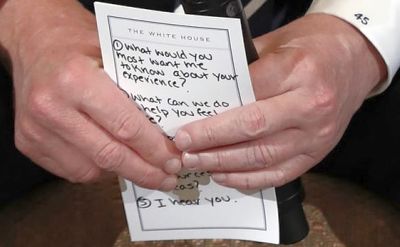 THE WHITE HOUSE
① What would you
most want me
to know about your
experience?
② What can we do
help you feel
5 I hear you.
45